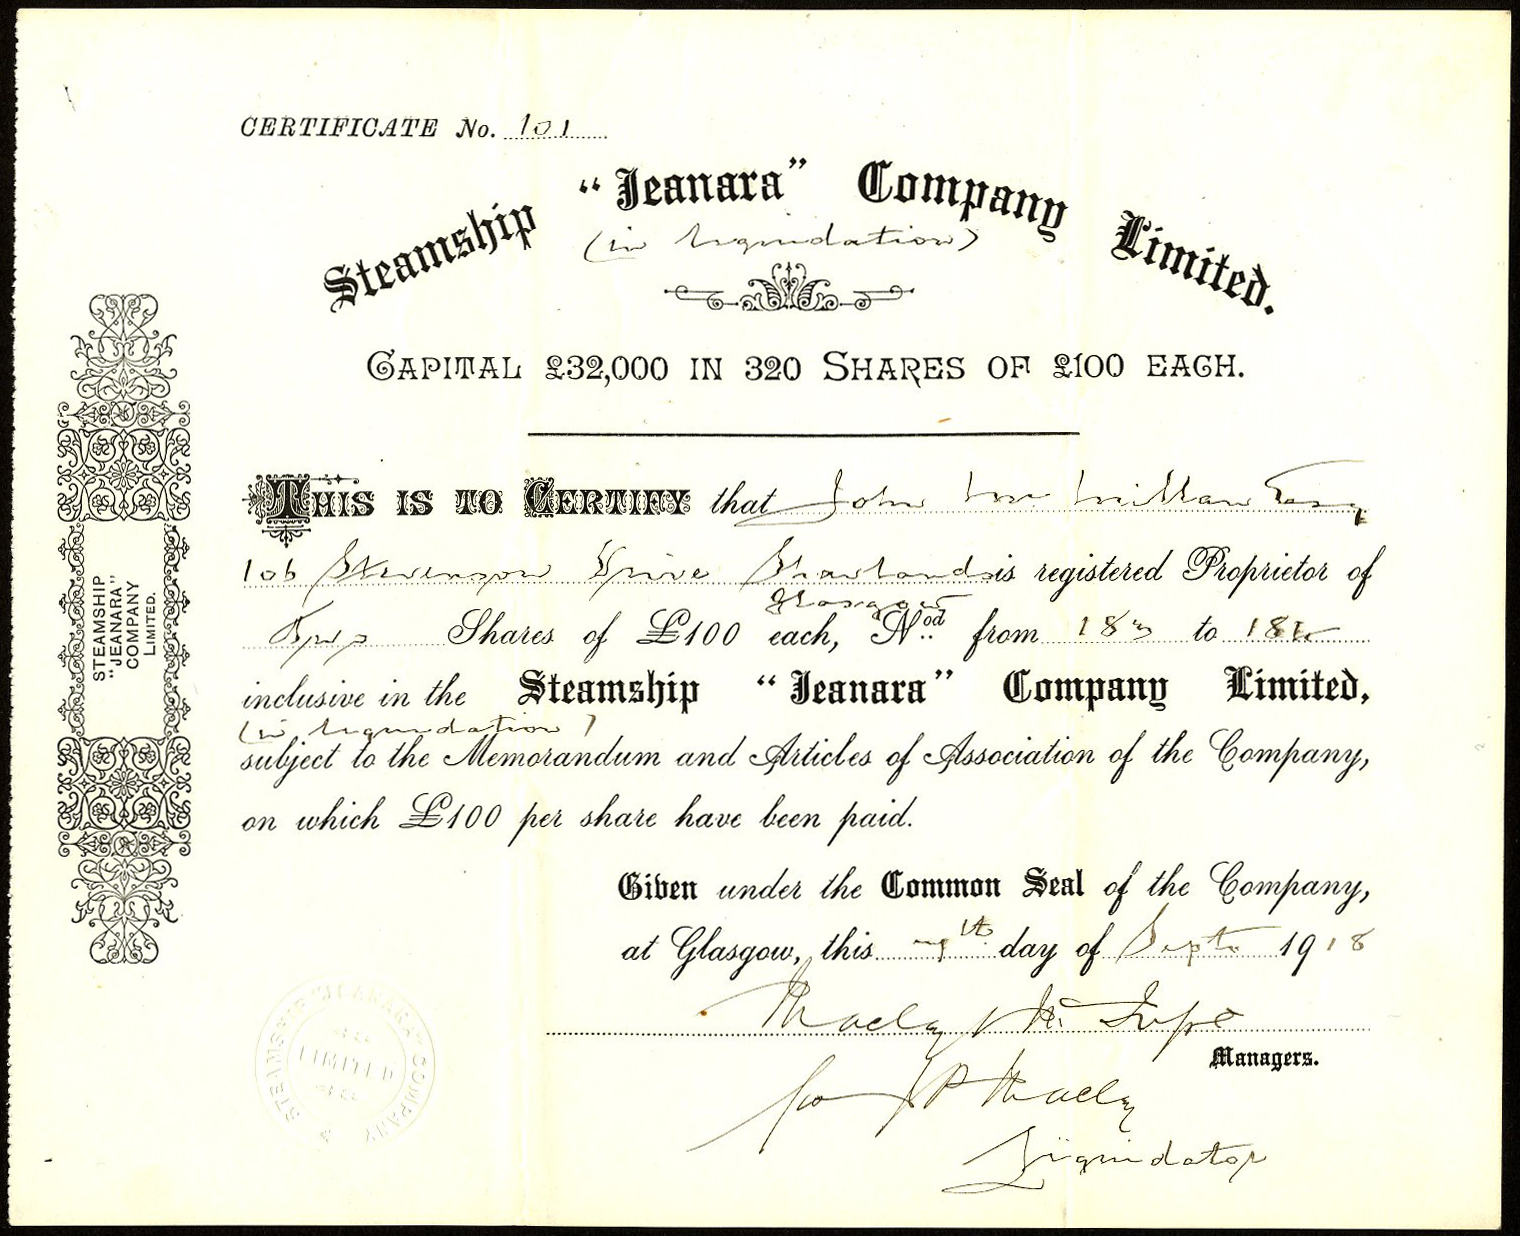 CERTIFICATE No. 101
Steamship "Jeanara" Company Limited.
(in liquidation)
CAPITAL £32,000 IN 320 SHARES OF £100 EACH.
THIS IS TO CERTIFY that John
106 Stevenson Drive Shawlands is registered Proprietor of
Glasgow
Two Shares of £100 each, Nod.. from 183 to 184
inclusive in the Steamship "Jeanara" Company Limited,
(in liquidation)
subject to the Memorandum and Articles of Association of the Company,
on which £100 per share have been paid.
Given under the Common Seal of the Company,
at Glasgow, this day of Septr 1918
Maclay & McIntyre
Managers.
J P Maclay
Liquidator
STEAMSHIP
"JEANARA"
COMPANY
LIMITED.
STEAMSHIP "JEANARA" COMPANY
LIMITED